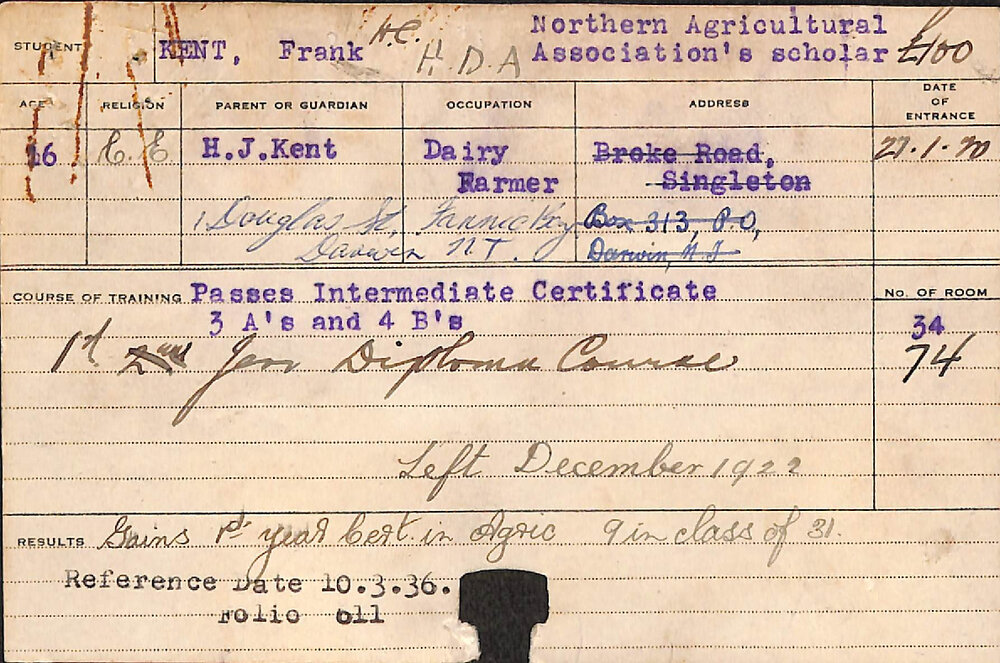 STUDENT KENT, Frank H.C. H.D.A Northern Agricultural
Association's scholar £100
AGE RELIGION PARENT OR GUARDIAN OCCUPATION ADDRESS DATE OF ENTRANCE
16 C. E. H.J.Kent Dairy Broke Road, 27.1.20
Farmer Singleton
1 Douglas St, Fannie Bay Box 313, P.O,
Darwin N.T. Darwin, N.T
COURSE OF TRAINING Passes Intermediate Certificate No. OF ROOM
3 A's and 4 B's 34
1st 2nd Year Diploma Course 74
Left December 1922
RESULTS Gains 1st year Cert. in Agric 9 in class of 31.
Reference Date 10.3.36.
Folio 611